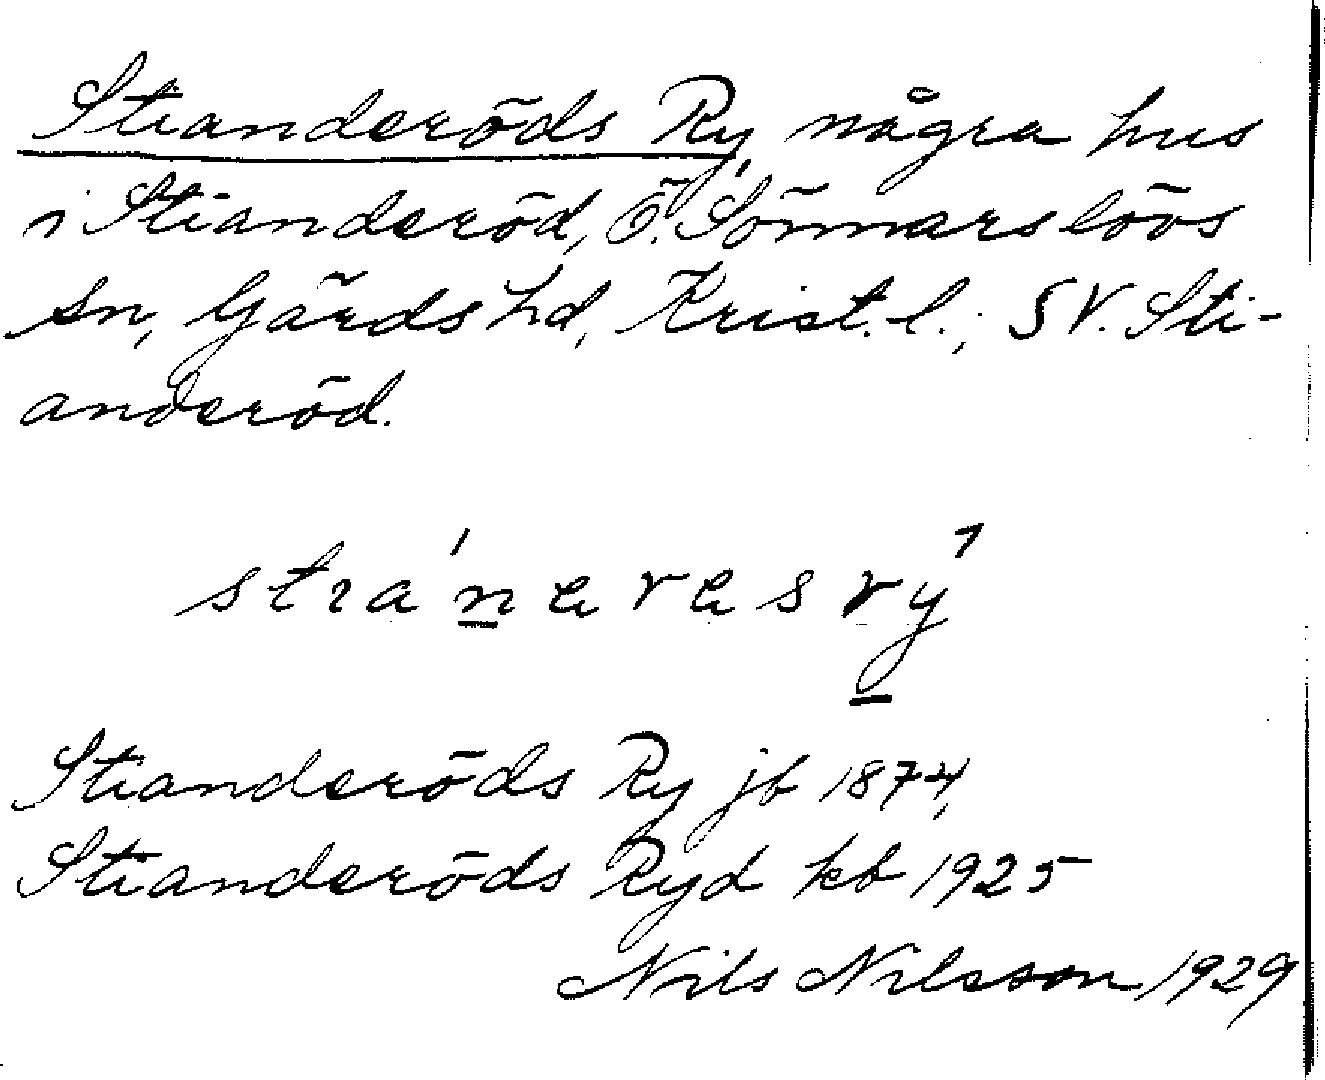 Stianderöds Ry, några hus
i Stianderöd, Ö. Sönnarslövs
sn, Gärds hd, Krist. l.; SV. Sti-
anderöd.
Stianderöds Ry jb 1874,
Stianderöds Ryd kb 1925
Nils Nilsson 1929